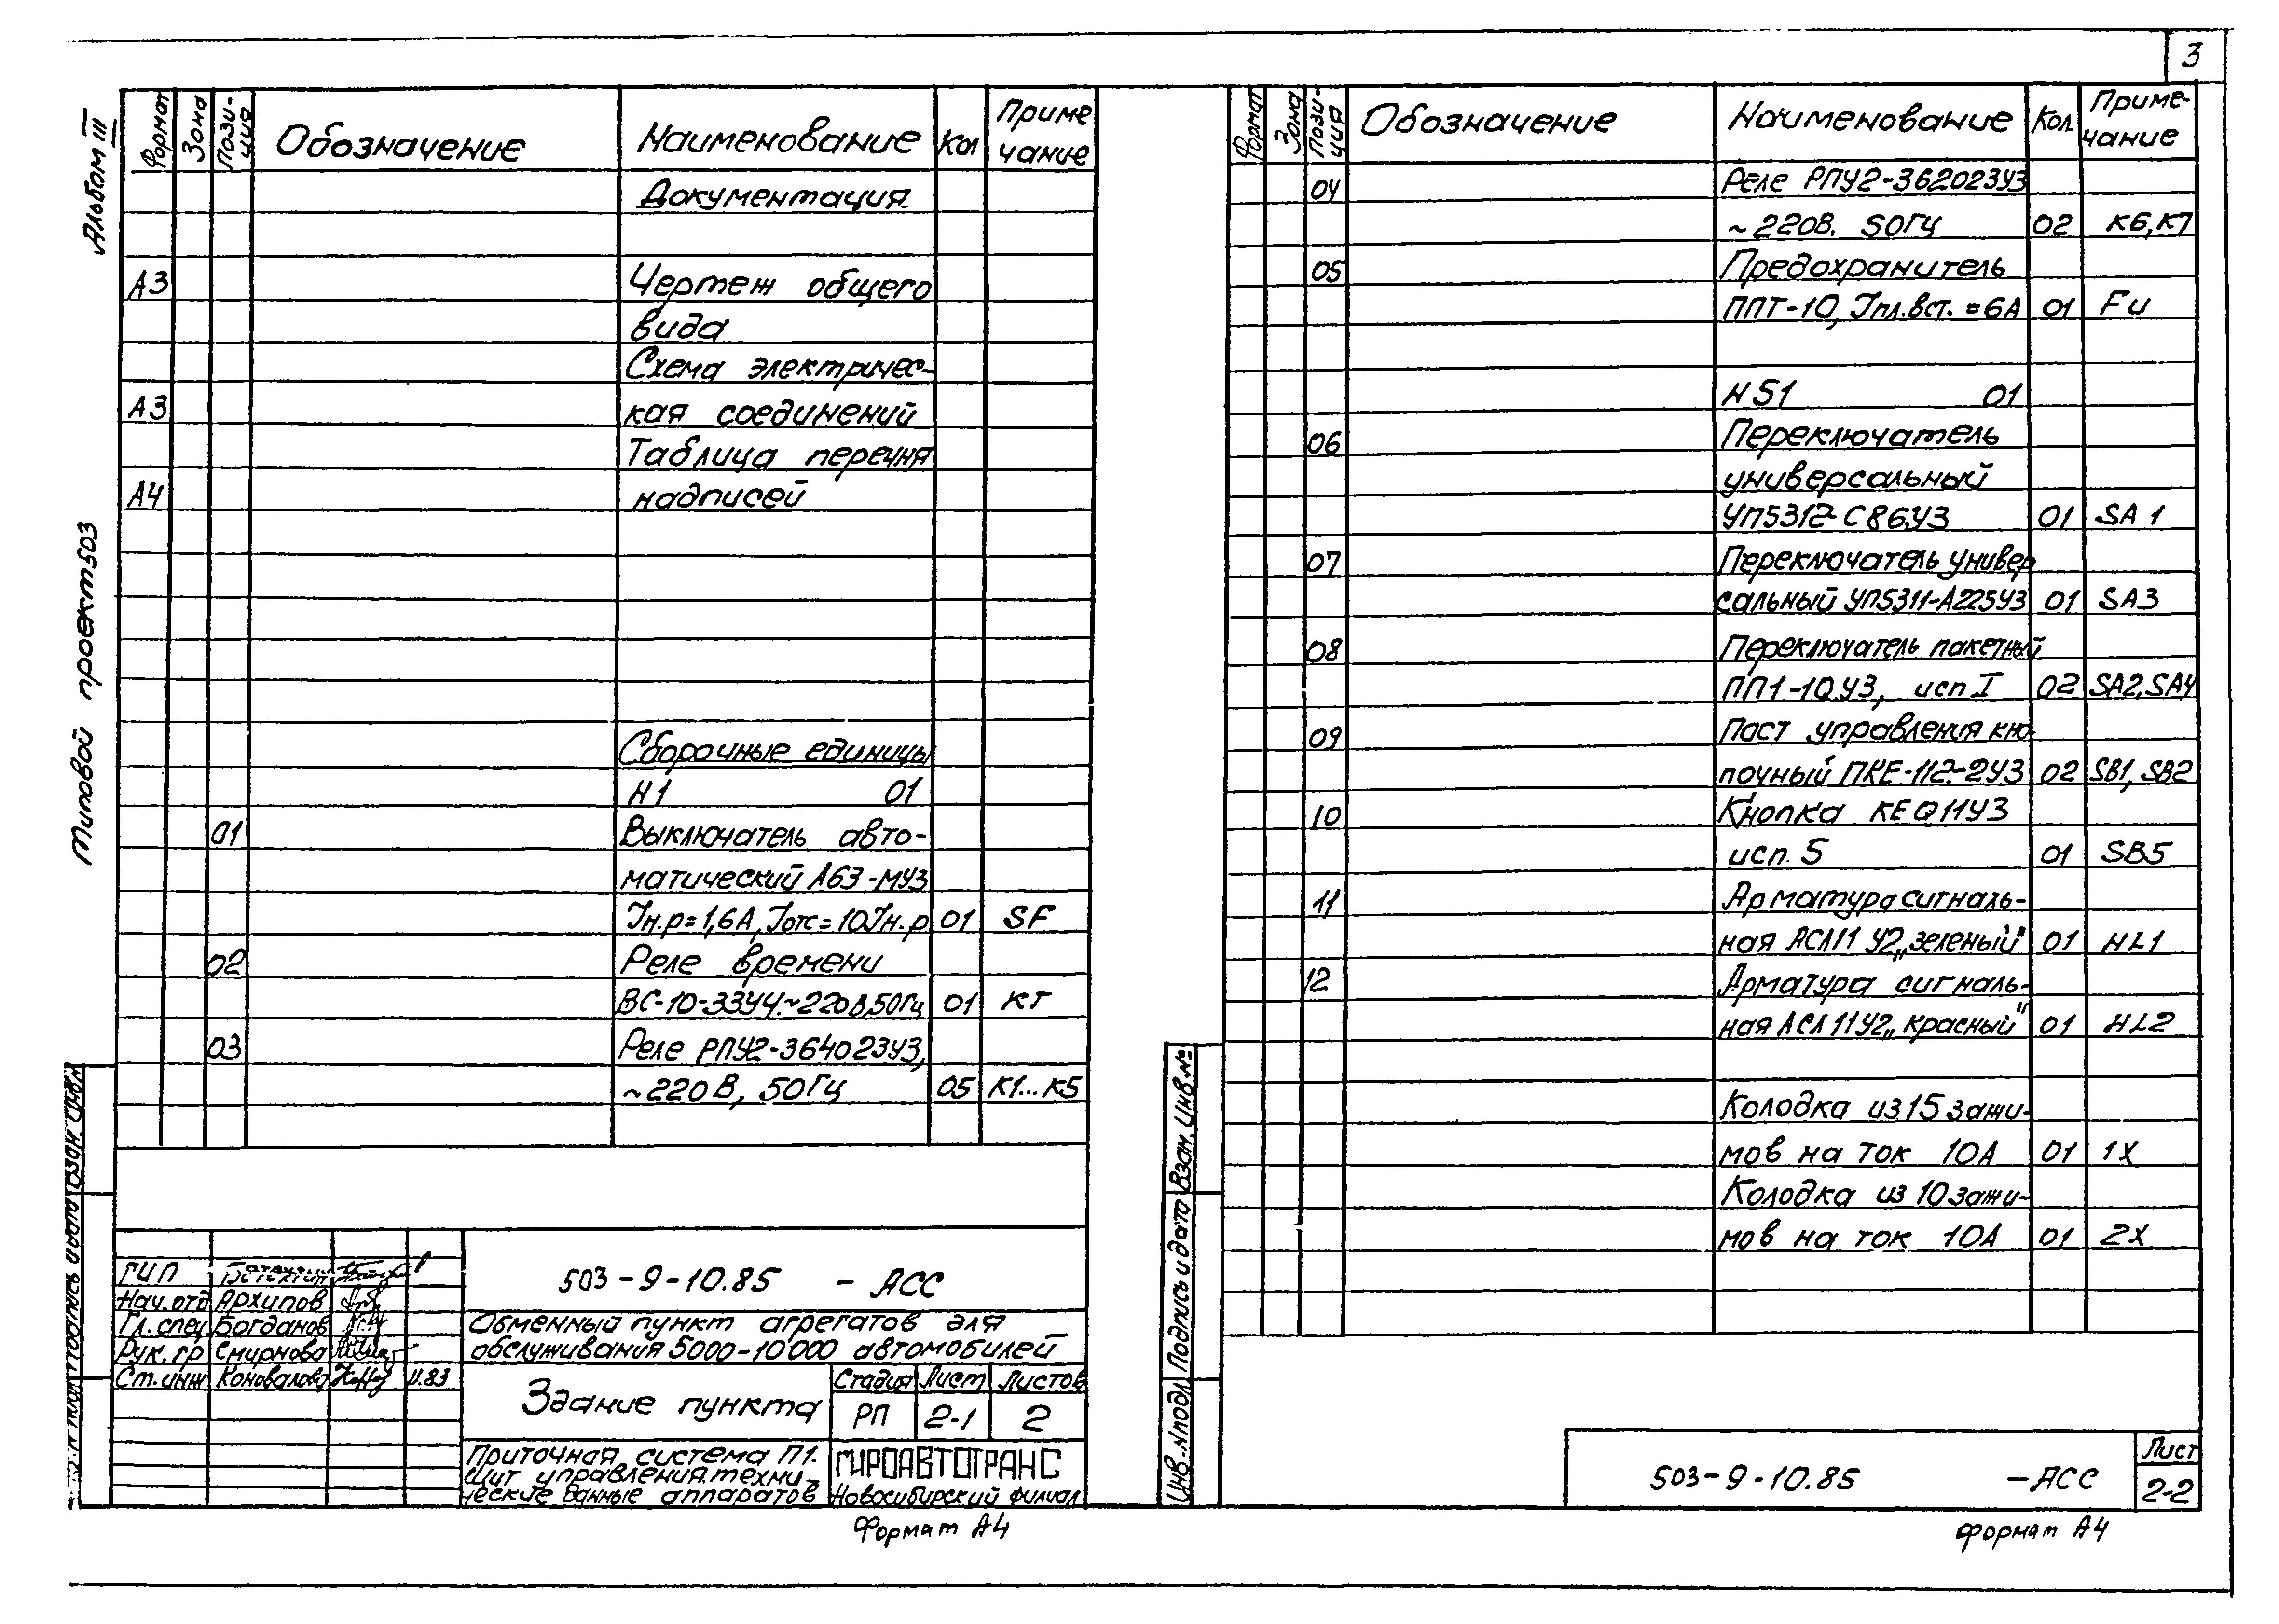 3
Альбом III
Типовой проект 503
Формат Зона Позиция Обозначение Наименование Кол Примечание
Документация
А3 Чертеж общего
вида
Схема электричес-
А3 кая соединений
Таблица перечня
А4 надписей
Сборочные единицы
Н1 01
01 Выключатель авто-
матический А63-МУ3
Iн.р=1,6А, Iотс=10Iн.р 01 SF
02 Реле времени
ВС-10-33У4.~220В,50Гц 01 КТ
03 Реле РПУ2-364023У3,
~220В, 50Гц 05 К1...К5
ГИП
Нач.отд Архипов
Гл. спец Богданов
Рук. гр Смирнова
Ст. инж Коновалова 11.83
503-9-10.85 - АСС
Обменный пункт агрегатов для
обслуживания 5000-10000 автомобилей
Здание пункта
Стадия Лист Листов
РП 2-1 2
Приточная система П1.
Щит управления. техни-
ческие данные аппаратов
ГИПРОАВТОТРАНС
Новосибирский филиал
Формат А4
Формат Зона Пози-ция Обозначение Наименование Кол. Приме-чание
04 Реле РПУ2-362023У3
~220В. 50Гц 02 К6,К7
05 Предохранитель
ППТ-10, Iпл.вст.=6А 01 Fu
Н51 01
06 Переключатель
универсальный
УП5312-С86У3 01 SA1
07 Переключатель универ
сальный УП5311-А225У3 01 SA3
08 Переключатель пакетный
ПП1-10У3, исп I 02 SA2,SA4
09 Пост управления кно-
почный ПКЕ-112-2У3 02 SB1, SB2
10 Кнопка КЕ011У3
исп. 5 01 SB5
11 Арматура сигналь-
ная АСЛ11 У2„зеленый" 01 HL1
12 Арматура сигналь-
ная АСЛ11У2„красный" 01 HL2
Колодка из 15 зажи-
мов на ток 10А 01 1Х
Колодка из 10 зажи-
мов на ток 10А 01 2Х
Инв.№подл Подпись и дата Взам.Инв.№
503-9-10.85 -АСС
Лист
2-2
Формат А4